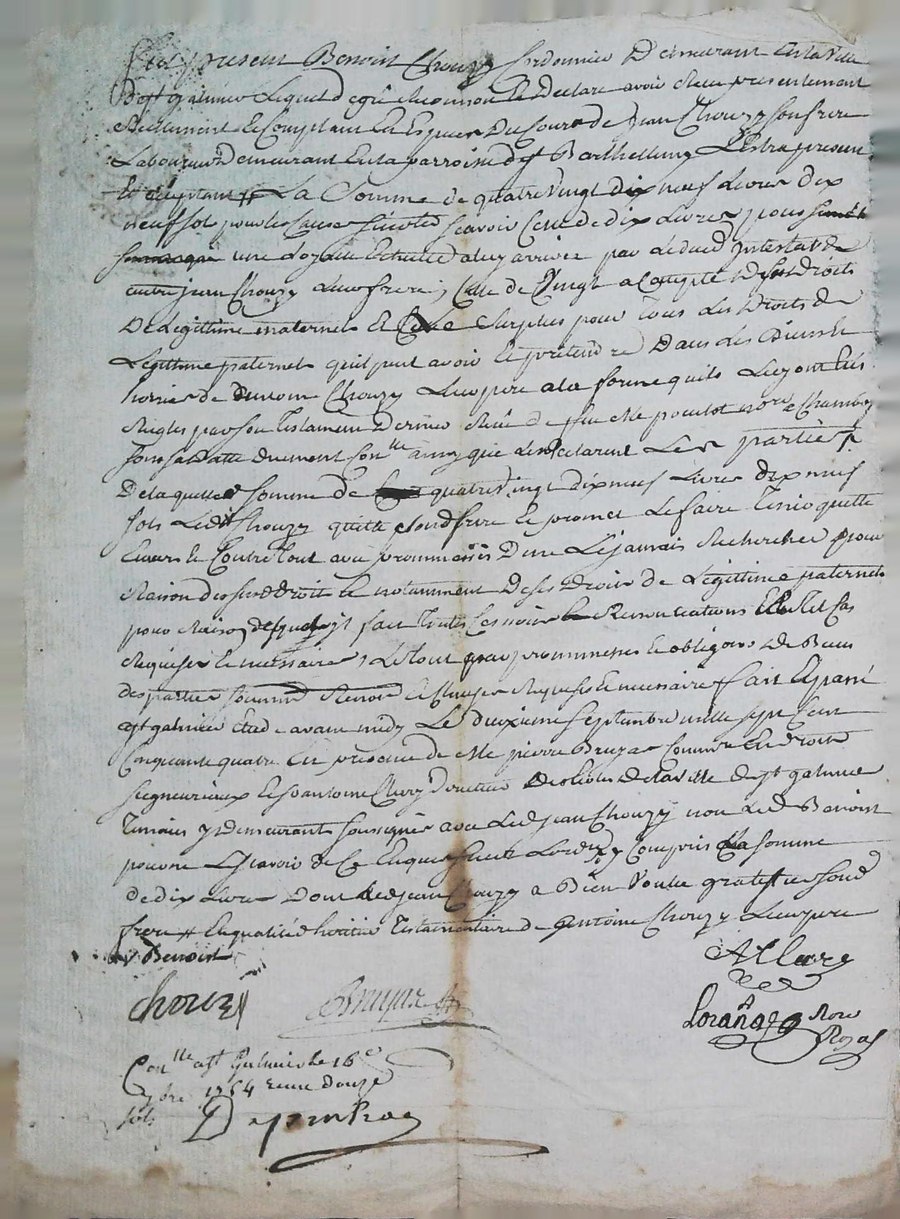 present Benoist Chouzy Cordonnier Demeurant en la ville
De st galmier Lequel de gré a reconnu et Declare avoir Receu presentement
Reelement et Comptant En Espece Du Cours de Jean Chouzy son frere
Laboureur Demeurant En la parroisse de st Barthellemy Lestra present
Et acceptant La Somme de quatre vingt dix neuf Livres dix
neuf sols pour les Causes Scavoir Celle de dix Livres pour
une Loyalle Echutte a luy arrivée par le deced intestat de
autre jean Chouzy Leur frere, Celle de Vingt a Compte de ses Droits
De Legittime maternels et Le Surplus pour Tous les Droits de
Legittime paternels qu'il peut avoir et pretendre Dans les Biens et
hoirie de Chouzy Leur pere a la forme quils Luy ont étés
Reglés par son Testament Dernier Receu de feu Me nore a Chamboy
sous sa datte duement Conllé ainsy que le Declarent Les parties
De laquelle somme de quatre vingt Dix neuf Livres dix neuf
sols Ledit Chouzy quitte sond frere et promet Le faire Tenir quitte
Envers et Contre tout avec prommesses De ne Le jamais Rechercher pour
Raison desd Droits et notamment De ses Droits de Legittime paternels
pour Raison desquels il fait Toutes Renonciations
Requises et necessaires, Le tout par prommesses et obligaons de Biens
des parties Renond et Clauses Requises et necessaires fait et passé
a st galmier Etude avant midy Le deuxieme Septembre mille Sept Cent
Cinquante quatre En presence de Me pierre Bruyas Commre En Droits
seigneuriaux et sr antoine Clerc Directeur Des de la ville de st galmier
Temoins y Demeurants soussignés avec Led jean Chouzy non Led Benoist
pour ne Scavoir de Ce Enquis Suivt Lord. y Compris La somme
de dix Livres Dont Led jean Chouzy a Bien Voulu gratiffier sond
frere # En qualité d'heritier Testamentaire de antoine Chouzy Leur pere
Benoist
A Clerc
chouzy Bruyas
Loranças Nore
Royal
Conllé a st Galmier le 16e
7bre 1754 Receu Douze
sols